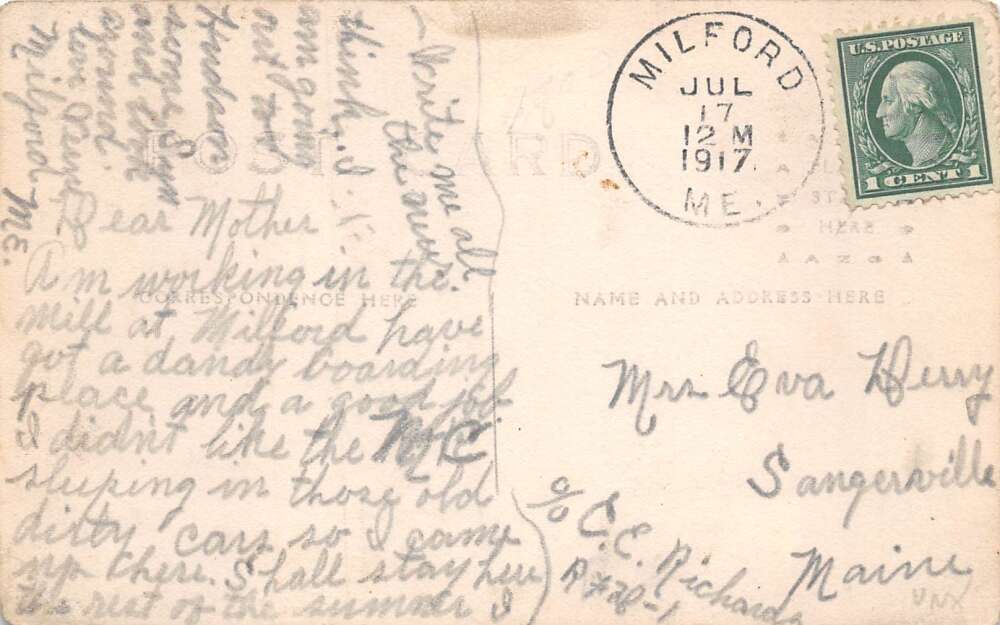 Dear Mother
Am working in the
mill at Milford have
got a dandy boarding
place and a good job
I didnt like the M C
sleeping in those old
dirty cars so I came
up there. Shall stay here
the rest of the summer I
think, I
am goin
out to
some
and
Milford
Me.
Write me all
the news.
POST CARD
CORRESPONDENCE HERE
NAME AND ADDRESS HERE
MILFORD
JUL
17
12 M
1917.
ME.
U.S. POSTAGE
1 CENT 1
HERE
AZO
Mrs Eva Derry
Sangerville
Maine
c/o C. E. Richards
UNX